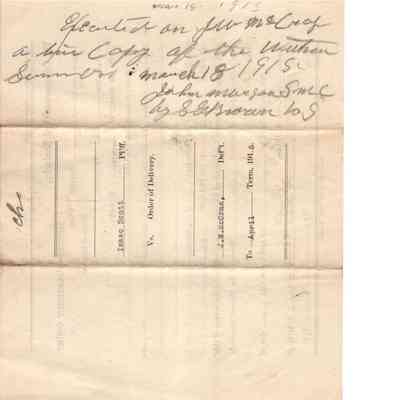 mar 18 1915
Executed on J W McCray
a true Copy of the within
Summons march 18 1915
John Morgan S M C
by E E Brown D S
Isaac Scott Pltff.
Vs. Order of Delivery.
Def't.
To April Term, 1915.